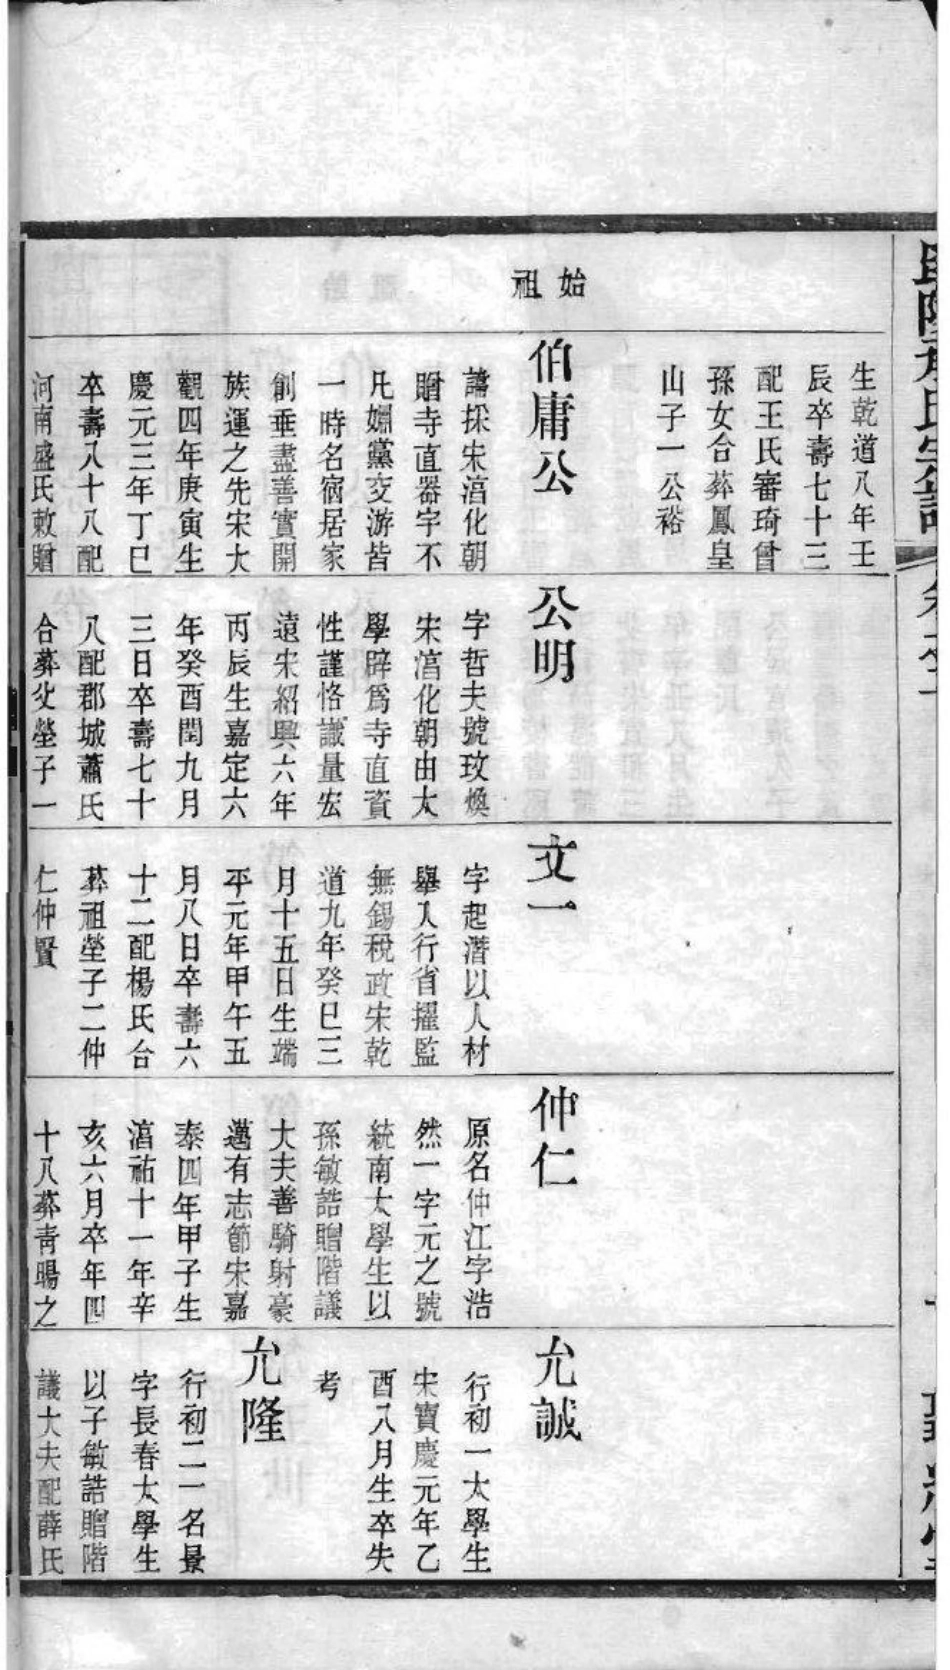 始
祖
生乾道八年壬
辰卒壽七十三
配王氏審琦曾
孫女合葬鳳皇
山子一公裕
伯庸公
諱採宋淳化朝
贈寺直器宇不
凡姻黨交游皆
一時名宿居家
創垂盡善實開
族運之先宋大
觀四年庚寅生
慶元三年丁巳
卒壽八十八配
河南盛氏敕贈
公明
字哲夫號玫煥
宋淳化朝由太
學辟爲寺直資
性謹恪識量宏
遠宋紹興六年
丙辰生嘉定六
年癸酉閏九月
三日卒壽七十
八配郡城蕭氏
合葬父塋子一
文一
字起潛以人材
舉入行省擢監
無錫稅政宋乾
道九年癸巳三
月十五日生端
平元年甲午五
月八日卒壽六
十二配楊氏合
葬祖塋子二仲
仁仲賢
仲仁
原名仲江字浩
然一字元之號
統南太學生以
孫敏誥贈階議
大夫善騎射豪
邁有志節宋嘉
泰四年甲子生
淳祐十一年辛
亥六月卒年四
十八葬青暘之
允誠
行初一太學生
宋寶慶元年乙
酉八月生卒失
考
允隆
行初二一名景
字長春太學生
以子敏誥贈階
議大夫配薛氏